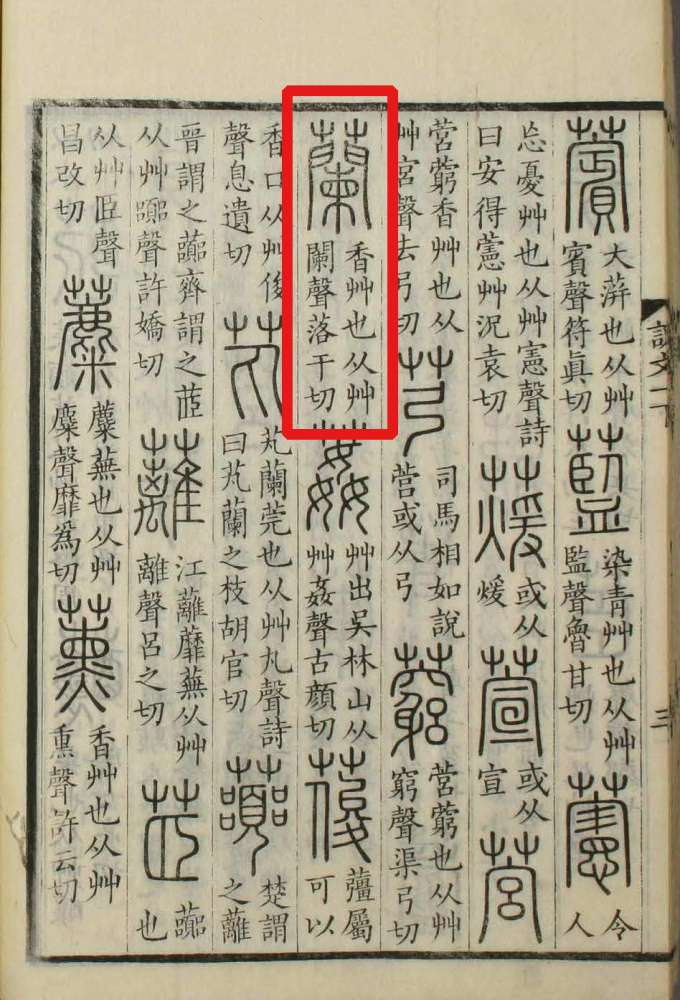 說文一下
三
薲
大蓱也从艸
賓聲符眞切
藍
染青艸也从艸
監聲魯甘切
藼
令
人
忘憂艸也从艸憲聲詩
曰安得藼艸況袁切
蕿
或从
煖
萱
或从
宣
营
营藭香艸也从
艸宮聲去弓切
芎
司馬相如說
营或从弓
藭
营藭也从艸
窮聲渠弓切
蘭
香艸也从艸
闌聲落干切
葌
艸出吳林山从
艸姦聲古顔切
葰
薑屬
可以
香口从艸俊
聲息遺切
芄
芄蘭莞也从艸丸聲詩
曰芄蘭之枝胡官切
虈
楚謂
之蘺
晉謂之虈齊謂之茝
从艸嚻聲許嬌切
蘺
江蘺蘼蕪从艸
離聲呂之切
茝
虈
也
从艸𦣝聲
昌改切
蘪
蘪蕪也从艸
麋聲靡爲切
薰
香艸也从艸
熏聲許云切